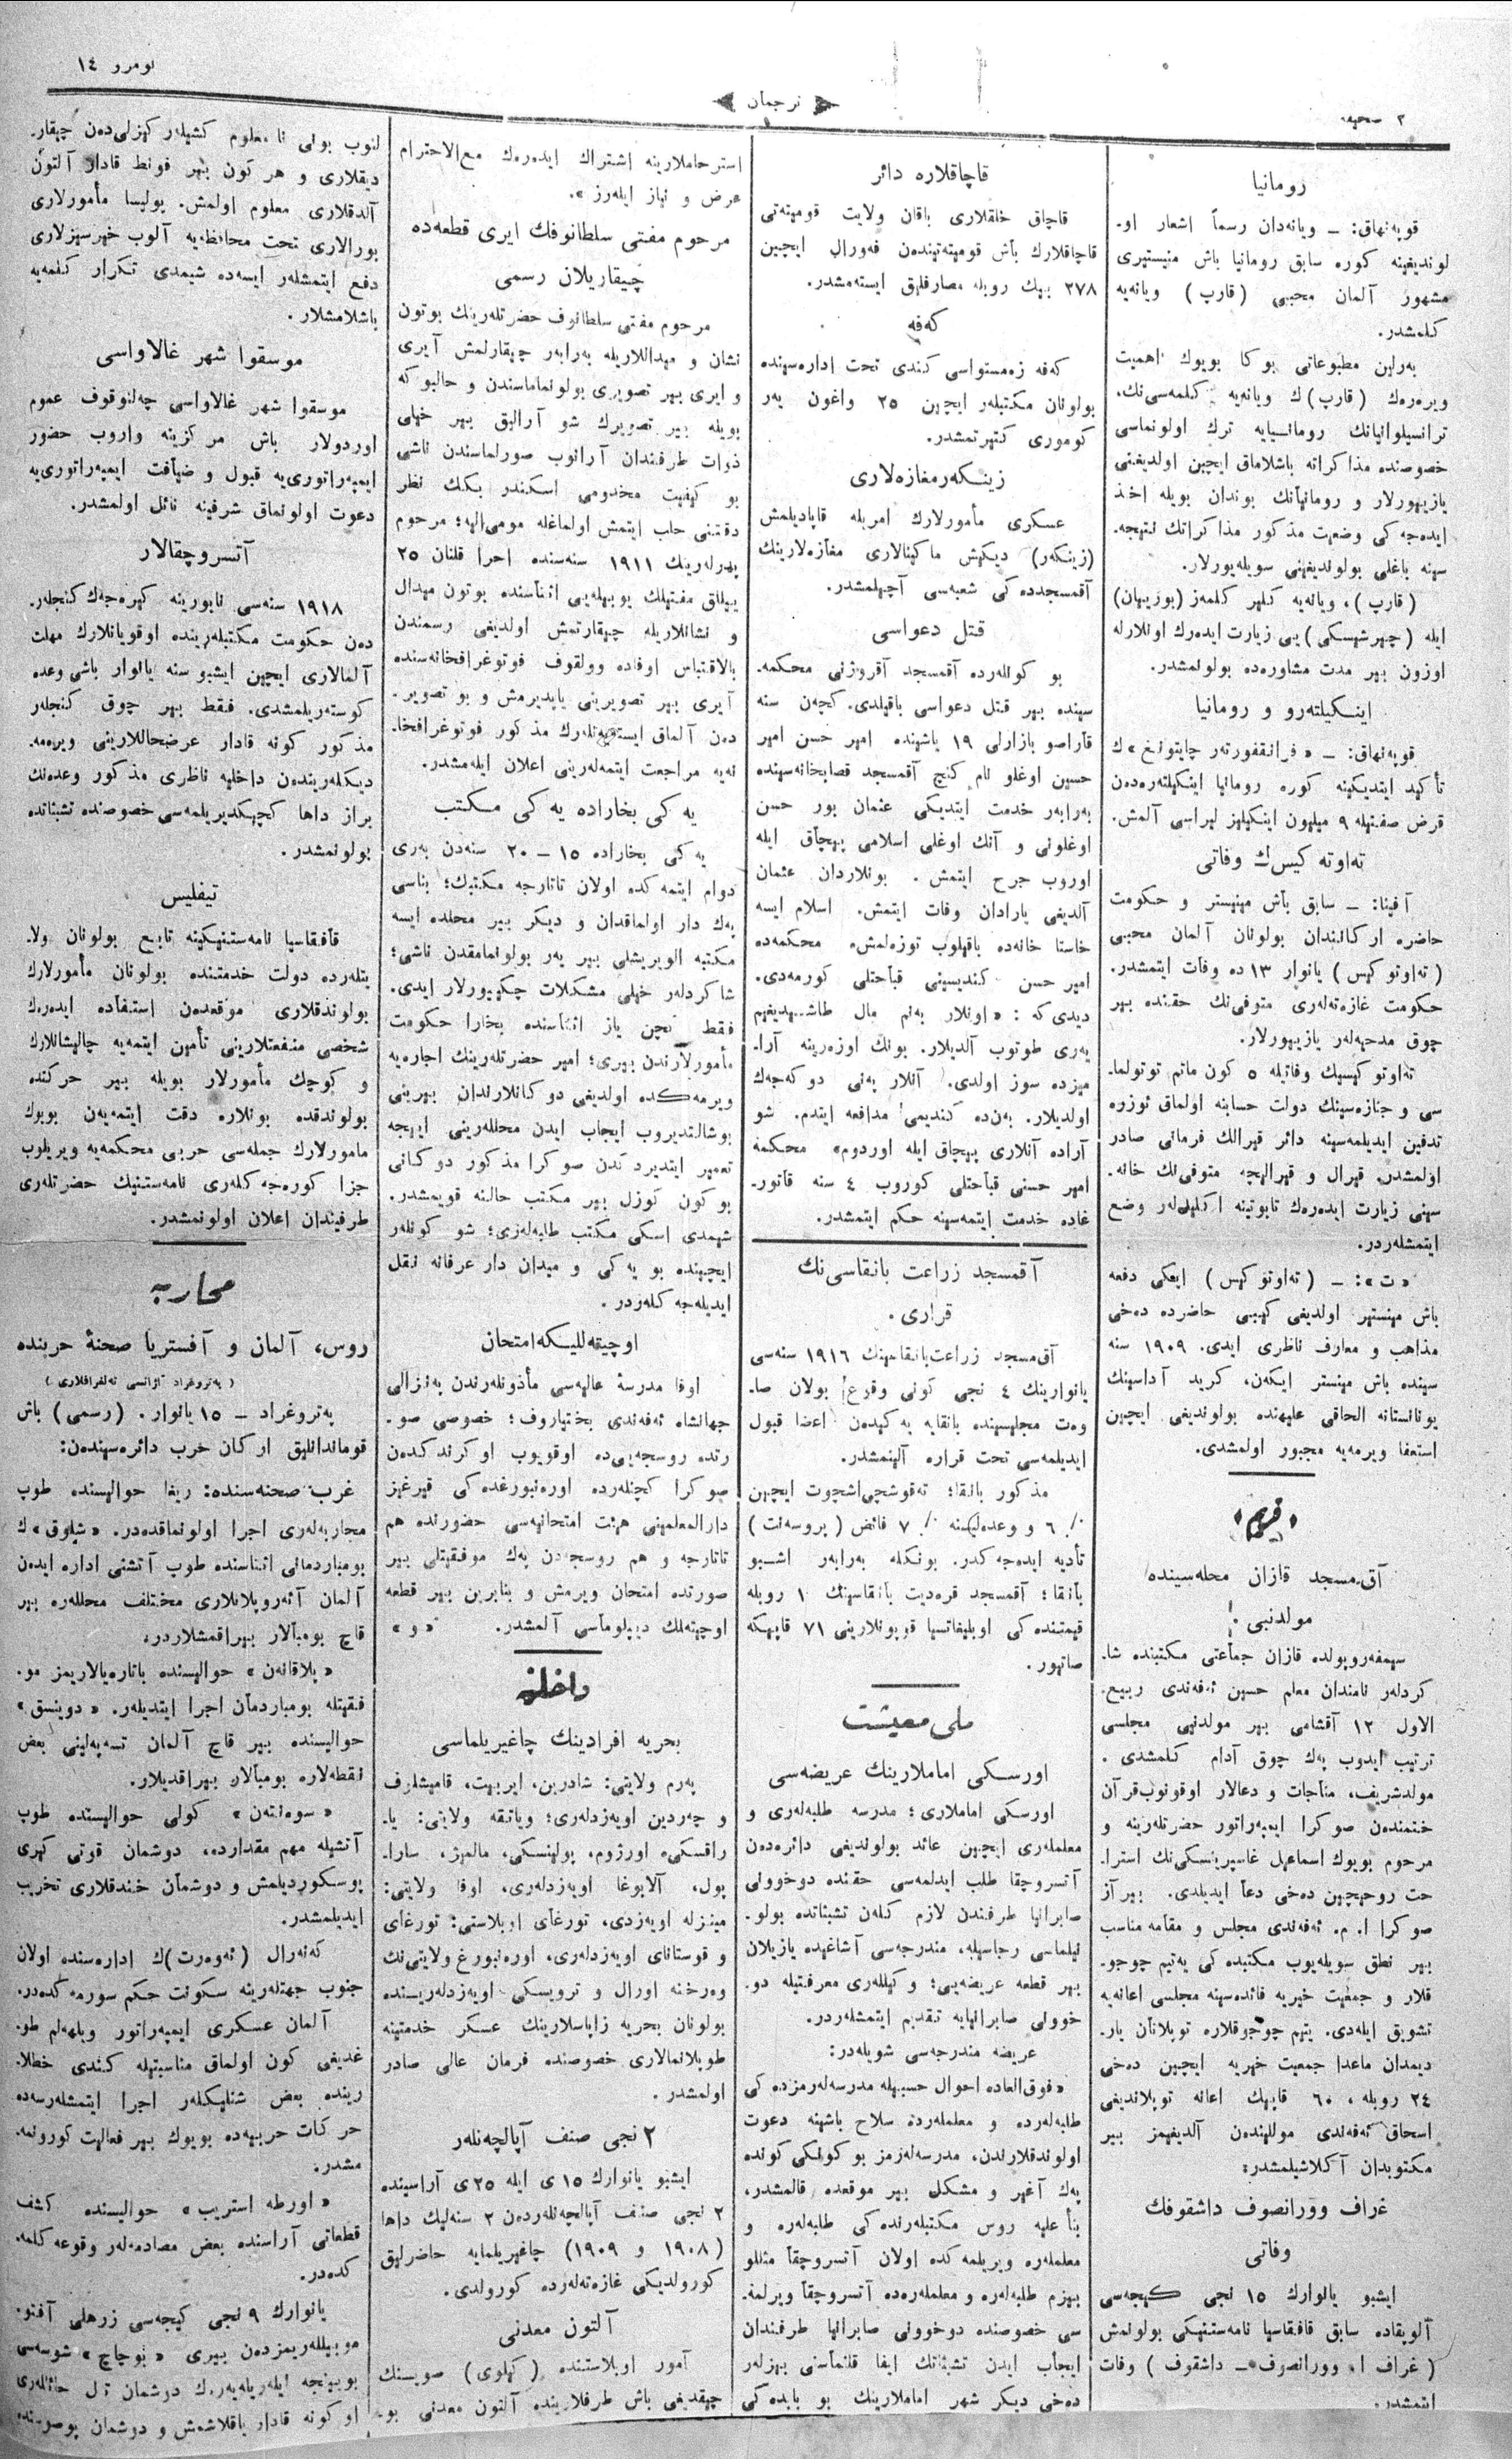 ٢ صحیفه
ترجمان
نومرو ١٤
رومانیا
قوپه‌نهاق: ــ ویانه‌دان رسماً اشعار او-
لوندیغینه کوره سابق رومانیا باش منیستیری
مشهور آلمان محبی (قارپ) ویانه‌یه
کلمشدر.
به‌رلین مطبوعاتی بوکا بویوك اهمیت
ویره‌رەك (قارپ)ك ویانه‌یه کلمه‌سی‌نك،
ترانسیلوانیانك رومانیایه ترك اولونماسی
خصوصنده مذاکراته باشلاماق ایچین اولدیغنی
یازییورلار و رومانیانك بوندان بویله اخذ
ایده‌جه‌کی وضعیت مذکور مذاکراتك نتیجه-
سینه باغلی بولوندیغینی سویله‌یورلار.
(قارپ)، ویانه‌یه کلیر کلمه‌ز (بوریان)
ایله (چیرشیسکی)یی زیارت ایده‌رك اونلارله
اوزون بیر مدت مشاوره‌ده بولونمشدر.
اینکیلته‌رو و رومانیا
قوپه‌نهاق: ــ «فرانقفورته‌ر چایتونغ»ك
تأکید ایتدیکینه کوره رومانیا اینکیلتەره‌دەن
قرض صفتیله ٩ میلیون اینکیلیز لیراسی آلمش.
ته‌اوته کیس‌ك وفاتی
آفینا: ــ سابق باش مینیستر و حکومت
حاضره ارکانندان بولونان آلمان محبی
(ته‌اوتوکیس) یانوار ١٣ ده وفات ایتمشدر.
حکومت غازه‌ته‌له‌ری متوفی‌نك حقنده بیر
چوق مدحیه‌له‌ر یازییورلار.
ته‌اوتوکیسیك وفاتیله ٥ کون ماتم توتولما-
سی و جنازه‌سینك دولت حسابنه اولماق ئوزره
تدفین ایدیلمه‌سینه دائر قیرالك فرمانی صادر
اولمشدر. قیرال و قیرالیچه متوفی‌نك خانه-
سینی زیارت ایده‌رەك تابوتینه اکلیل‌له‌ر وضع
ایتمشله‌ردر.
«ت»: ــ (ته‌اوتوکیس) ایکی دفعه
باش مینستیر اولدیغی کیبی حاضرده ده‌خی
مذاهب و معارف ناظری ایدی. ١٩٠٩ سنه
سینده باش مینستر ایکه‌ن، کرید آداسینك
یونانستانه الحاقی علیهنده بولوندیغی ایچین
استعفا ویرمه‌یه مجبور اولمشدی.
قریم
آق‌مسجد قازان محله‌سینده
مولدنبی
سیمفه‌روپولده قازان جماعتی مکتبنده شا-
کردله‌ر نامندان معلم حسین ئەفه‌ندی ربیع-
الاول ١٢ آقشامی بیر مولدنبی مجلسی
ترتیب ایدوب په‌ك چوق آدام کلمشدی.
مولدشریف، مناجات و دعالار اوقونوب قرآن
ختمنده‌ن صوکرا ایمپه‌راتور حضرته‌لرینه و
مرحوم بویوك اسماعیل غاسپرینسکی‌نك استرا-
حت روحیچین ده‌خی دعا ایدیلدی. بیر آز
صوکرا ا. م. ئەفه‌ندی مجلس و مقامه مناسب
بیر نطق سویله‌یوب مکتبده‌کی یه‌تیم چوجو-
قلار و جمعیت خیریه فائده‌سینه مجلسی اعانه‌یه
تشویق ایله‌دی. یتیم چوجوقلاره توپلانان یار-
دیمدان ماعدا جمعیت خیریه ایچین ده‌خی
٢٤ روبله، ٦٠ قاپیك اعانه توپلاندیغی
اسحاق ئەفه‌ندی موللینده‌ن آلدیغیمز بیر
مکتوبدان آکلاشیلمشدر.
غراف وورانصوف داشقوفك
وفاتی
ایشبو یانوارك ١٥ نجی کیجه‌سی
آلوپقاده سابق قافقاسیا نامه‌ستنیکی بولونمش
(غراف ا. وورانصوف ــ داشقوف) وفات
ایتمشدر.
قاچاقلاره دائر
قاچاق خلقلاری باقان ولایت قومیته‌تی
قاچاقلارك باش قومیته‌تینده‌ن فه‌ورال ایچین
٢٧٨ بیك روبله مصارفلیق ایسته‌مشدر.
که‌فه
که‌فه زه‌مستواسی کندی تحت اداره‌سینده
بولونان مکتبله‌ر ایچین ٢٥ واغون یه‌ر
کوموری کتیرتمشدر.
زینکه‌رمغازه‌لاری
عسکری مأمورلارك امریله قاپادیلمش
(زینکه‌ر) دیکیش ماکینالاری مغازه‌لارینك
آقمسجدده‌کی شعبه‌سی آچیلمشدر.
قتل دعواسی
بو کونله‌رده آقمسجد آقروژنی محکمه-
سینده بیر قتل دعواسی باقیلدی. کچه‌ن سنه
قاراصو بازارلی ١٩ یاشینده امیر حسن امیر
حسین اوغلو نام کنج آقمسجد قصابخانه‌سینده
به‌رابه‌ر خدمت ایتدیکی عثمان بور حسن
اوغلونی و آنك اوغلی اسلامی بیچاق ایله
اوروب جرح ایتمش. بونلاردان عثمان
آلدیغی یارادان وفات ایتمش. اسلام ایسه
خاستا خانه‌ده باقیلوب توزه‌لمش. محکمه‌ده
امیر حسن کندیسینی قباحتلی کورمه‌دی.
دیدی‌که: «اونلار به‌نم مال طاشیدیغیم
یه‌ری طوتوب آلدیلار. بونك اوزه‌رینه آرا-
میزده سوز اولدی. آنلار به‌نی دوکه‌جه‌ك
اولدیلار. به‌ن‌ده کندیمی مدافعه ایتدم. شو
آراده آنلاری بیچاق ایله اوردوم» محکمه
امیر حسنی قباحتلی کوروب ٤ سنه قاتور-
غاده خدمت ایتمه‌سینه حکم ایتمشدر.
آقمسجد زراعت بانقاسی‌نك
قراری.
آق‌مسجد زراعت‌بانقاسینك ١٩١٦ سنه‌سی
یانوارینك ٤ نجی کونی وقوع بولان صا-
وه‌ت مجلسینده بانقایه یه‌کیده‌ن اعضا قبول
ایدیلمه‌سی تحت قراره آلینمشدر.
مذکور بانقا؛ ته‌قوشچی‌اشچوت ایچین
٪ ٦ و وعده‌لیسنه ٪ ٧ فائض (پروسه‌نت)
تأدیه ایده‌جه‌کدر. بونکله به‌رابه‌ر اشبو
بانقا؛ آقمسجد قره‌دیت بانقاسینك ١٠ روبله
قیمتنده‌کی اوبلیغاتسیا قوپونلارینی ٧١ قاپیکه
صاتیور.
ملی معیشت
اورسکی اماملارینك عریضه‌سی
اورسکی اماملاری؛ مدرسه طلبه‌له‌ری و
معلمله‌ری ایچین عائد بولوندیغی دائره‌ده‌ن
آتسروچقا طلب ایدلمه‌سی حقنده دوخوونی
صابرانیا طرفندن لازم کله‌ن تشبثاتده بولو-
نیلماسی رجاسیله، مندرجه‌سی آشاغیده یازیلان
بیر قطعه عریضه‌یی؛ وکیلله‌ری معرفتیله دو-
خوونی صابرانیایه تقدیم ایتمشله‌ردر.
عریضه مندرجه‌سی شویله‌در:
«فوق‌العاده احوال حسبیله مدرسه‌له‌رمزده‌کی
طلبه‌له‌رده و معلمله‌رده سلاح باشینه دعوت
اولوندقلارندن، مدرسه‌له‌رمز بوکونکی کونده
په‌ك آغیر و مشکل بیر موقعده قالمشدر،
بنأ علیه روس مکتبله‌رنده‌کی طلبه‌له‌ره و
معلمله‌ره ویریلمه‌کده اولان آتسروچقا مثللو
بیزم طلبه‌له‌ره و معلمله‌ره‌ده آتسروچقا ویرلمه-
سی خصوصنده دوخوونی صابرانیا طرفندان
ایجاب ایدن تشبثاتك ایفا قلنماسنی بیزله‌ر
ده‌خی دیکر شهر اماملارینك بو بابده‌کی
استرحاملارینه اشتراك ایده‌ره‌ك مع‌الاحترام
عرض و نیاز ایله‌رز».
مرحوم مفتی سلطانوفك ایری قطعه‌ده
چیقاریلان رسمی
مرحوم مفتی سلطانوف حضرتله‌رینك بوتون
نشان و میداللاریله به‌رابه‌ر چیقارلمش آیری
و ایری بیر تصویری بولونماماسندن و حالبوکه
بویله بیر تصویرك شو آرالیق بیر خیلی
ذوات طرفندان آرانوب صورلماسندن ناشی
بو کیفیت مخدومی اسکندر بکك نظر
دقتنی جلب ایتمش اولماغله مومی‌الیه؛ مرحوم
پدرله‌رینك ١٩١١ سنه‌سنده اجرا قلنان ٢٥
ییللق مفتیلك یوبیله‌یی اثناسنده بوتون میدال
و نشانلاریله چیقارتمش اولدیغی رسمندن
بالاقتباس اوفاده وولقوف فوتوغرافخانه‌سنده
آیری بیر تصویرینی یاپدیرمش و بو تصویر-
ده‌ن آلماق ایسته‌یه‌نله‌رك مذکور فوتوغرافخا-
نه‌یه مراجعت ایتمه‌له‌رینی اعلان ایله‌مشدر.
یه‌کی بخاراده یه‌کی مکتب
یه‌کی بخاراده ١٥ ــ ٢٠ سنه‌دن به‌ری
دوام ایتمه‌کده اولان تاتارجه مکتبك؛ بناسی
په‌ك دار اولماقدان و دیکر بیر محلده ایسه
مکتبه الویریشلی بیر یه‌ر بولونمامقدن ناشی؛
شاکردله‌ر خیلی مشکلات چکییورلار ایدی.
فقط کچن یاز اثناسنده بخارا حکومت
مأمورلارندن بیری؛ امیر حضرتله‌رینك اجاره‌یه
ویرمه‌کده اولدیغی دوکانلارندان بیرینی
بوشالتدیروب ایجاب ایدن محلله‌رینی اییجه
تعمیر ایتدیردکدن صوکرا مذکور دوکانی
بوکون کوزل بیر مکتب حالنه قویمشدر.
شیمدی اسکی مکتب طلبه‌له‌ری؛ شو کونله‌ر
ایچینده بو یه‌کی و میدان دار عرفانه نقل
ایدیله‌جه‌کله‌ردر.
اوچیته‌للیکه‌امتحان
اوفا مدرسهٔ عالیه‌سی مأذونله‌رندن به‌نزالی
جهانشاه ئەفه‌ندی بختیاروف؛ خصوصی صو-
رتده روسجه‌یی‌ده اوقویوب اوکرندکدەن
صوکرا کچنله‌رده اوره‌نبورغده‌کی قیرغیز
دارالمعلمینی هیئت امتحانیه‌سی حضورنده هم
تاتارجه و هم روسجه‌دن په‌ك موفقیتلی بیر
صورتده امتحان ویرمش و بنابرین بیر قطعه
اوچیته‌للك دیپلوماسی آلمشدر. «و»
داخلیه
بحریه افرادینك چاغیریلماسی
په‌رم ولایتی: شادرین، ایربیت، قامیشلوف
و چه‌ردین اویه‌زدله‌ری؛ ویاتقه ولایتی: یا-
رانسکی، اورژوم، یولینسکی، مالمیژ، سارا-
پول، آلابوغا اویه‌زدله‌ری، اوفا ولایتی:
مینزله اویه‌زدی، تورغای اوبلاستی: تورغای
و قوستانای اویه‌زدله‌ری، اوره‌نبورغ ولایتی‌نك
وه‌رخنه اورال و ترویسکی اویه‌زدله‌ریسنده
بولونان بحریه زاپاسلارینك عسکر خدمتینه
طوپلانمالاری خصوصنده فرمان عالی صادر
اولمشدر.
٢ نجی صنف آپالچه‌نله‌ر
ایشبو یانوارك ١٥ی ایله ٢٥ی آراسینده
٢ نجی صنف آپالچه‌نله‌ردەن ٢ سنه‌لیك داها
(١٩٠٨ و ١٩٠٩) چاغیریلمایه حاضرلیق
کورولدیکی غازه‌ته‌له‌رده کورولدی.
آلتون معدنی
آمور اوبلاستنده (کیلوی) صویینك
چیقدیغی باش طرفلارینده آلتون معدنی بو-
لنوب بونی نا معلوم کشیله‌ر کیزلی‌دەن چیقار-
دیقلاری و هر کون بیر فونط قادار آلتون
آلدقلاری معلوم اولمش. پولیسا مأمورلاری
بورالاری تحت محافظه‌یه آلوب خیرسیزلاری
دفع ایتمشله‌ر ایسه‌ده شیمدی تکرار کلمه‌یه
باشلامشلار.
موسقوا شهر غالاواسی
موسقوا شهر غالاواسی چه‌لنوقوف عموم
اوردولار باش مرکزینه واروب حضور
ایمپه‌راتوری‌یه قبول و ضیافت ایمپه‌راتوری‌یه
دعوت اولونماق شرفینه نائل اولمشدر.
آتسروچقالار
١٩١٨ سنه‌سی نابورینه کیره‌جه‌ك کنجله‌ر-
ده‌ن حکومت مکتبله‌رینده اوقویانلارك مهلت
آلمالاری ایچین ایشبو سنه یانوار باشی وعده
کوسته‌ریلمشدی. فقط بیر چوق کنجله‌ر
مذکور کونه قادار عرضحاللارینی ویرمه-
دیکله‌رینده‌ن داخلیه ناظری مذکور وعده‌نك
براز داها کچیکدیریلمه‌سی خصوصنده تشبثاتده
بولونمشدر.
تیفلیس
قافقاسیا نامه‌ستنیکینه تابع بولونان ولا-
یتله‌رده دولت خدمتنده بولونان مأمورلارك
بولوندقلاری موقعده‌ن استفاده ایده‌رەك
شخصی منفعتلارینی تأمین ایتمه‌یه چالیشانلارك
و کوچك مأمورلار بویله بیر حرکتده
بولوندقده بونلاره دقت ایتمه‌یه‌ن بویوك
مامورلارك جمله‌سی حربی محکمه‌یه ویریلوب
جزا کوره‌جه‌کله‌ری نامه‌ستنیك حضرتله‌ری
طرفیندان اعلان اولونمشدر.
محاربه
روس، آلمان و آفستریا صحنهٔ حربنده
(په‌تروغراد آژانسی ته‌لغرافلاری)
په‌تروغراد ــ ١٥ یانوار. (رسمی) باش
قوماندانلیق ارکان حرب دائره‌سینده‌ن:
غرب صحنه‌سنده: ریغا حوالیسنده طوپ
محاربه‌له‌ری اجرا اولونماقده‌در. «شلوق»ك
بومباردمانی اثناسنده طوپ آتشنی اداره ایده‌ن
آلمان آئه‌روپلانلاری مختلف محلله‌ره بیر
قاچ بومبالار بیراقمشلاردر.
«یلاقانه‌ن» حوالیسنده باتاره‌یالاریمز مو-
فقیتله بومباردمان اجرا ایتدیله‌ر. «دوینسق»
حوالیسنده بیر قاچ آلمان تسه‌په‌لینی بعض
نقطه‌لاره بومبالار بیراقدیلار.
«سوه‌نته‌ن» کولی حوالیسنده طوپ
آتشیله مهم مقدارده، دوشمان قوتی کیری
پوسکوردیلمش و دوشمان خندقلاری تخریب
ایدیلمشدر.
که‌نه‌رال (ئه‌وه‌رت)ك اداره‌سنده اولان
جنوب جهتله‌رینه سکونت حکم سورمه‌کده‌در.
آلمان عسکری ایمپه‌راتور ویلهه‌لم طو-
غدیغی کون اولماق مناسبتیله کندی خطلا-
رینده بعض شنلیکله‌ر اجرا ایتمشله‌رسه‌ده
حرکات حربیه‌ده بویوك بیر فعالیت کورونمه-
مشدر.
«اورطه استریپ» حوالیسنده کشف
قطعاتی آراسنده بعض مصادمه‌له‌ر وقوعه کلمه-
کده‌در.
یانوارك ٩ نجی کیجه‌سی زرهلی آفتو-
موبیللەریمزده‌ن بیری «بوچاچ» شوسه‌سی
بویینجه ایله‌ریله‌یه‌رك دوشمان تل حائله‌ری
اوکونه قادار یاقلاشمش و دوشمان پوصوسنده